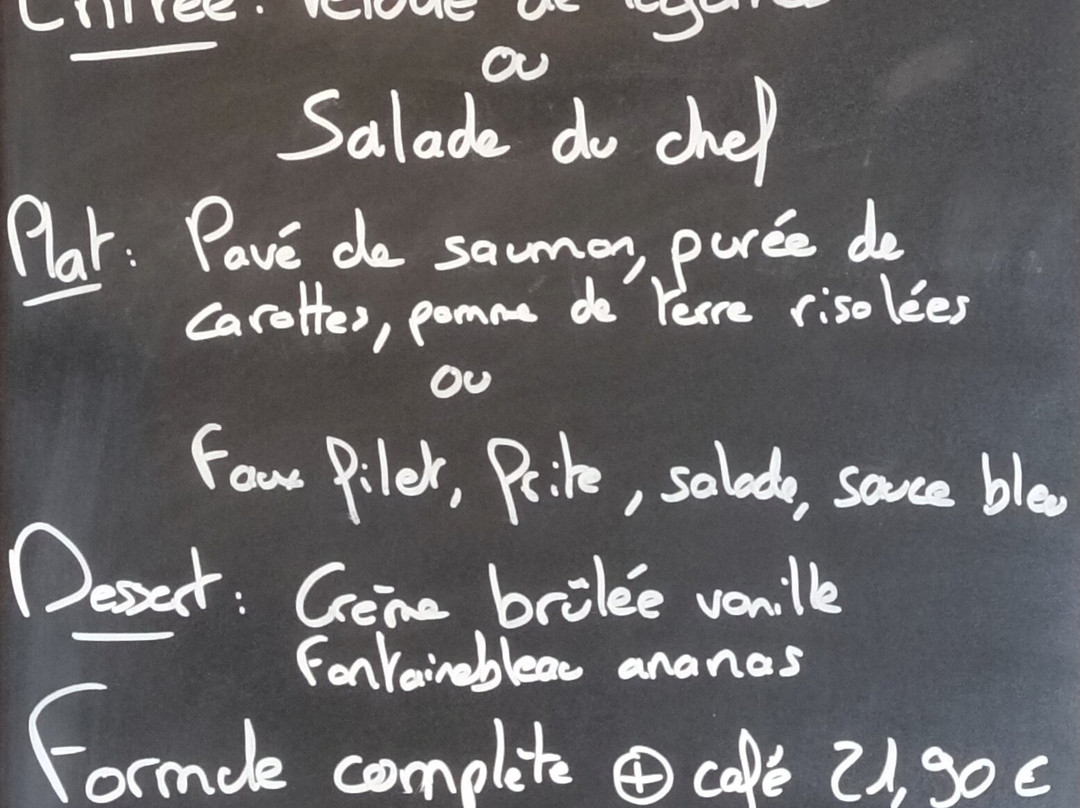 Entrée: Velouté de légumes
ou
Salade du chef
Plat: Pavé de saumon, purée de
carottes, pomme de terre risolées
ou
Faux filet, frite, salade, sauce bleu
Dessert: Crème brûlée vanille
Fontainebleau ananas
Formule complète ⊕ café 21,90 €